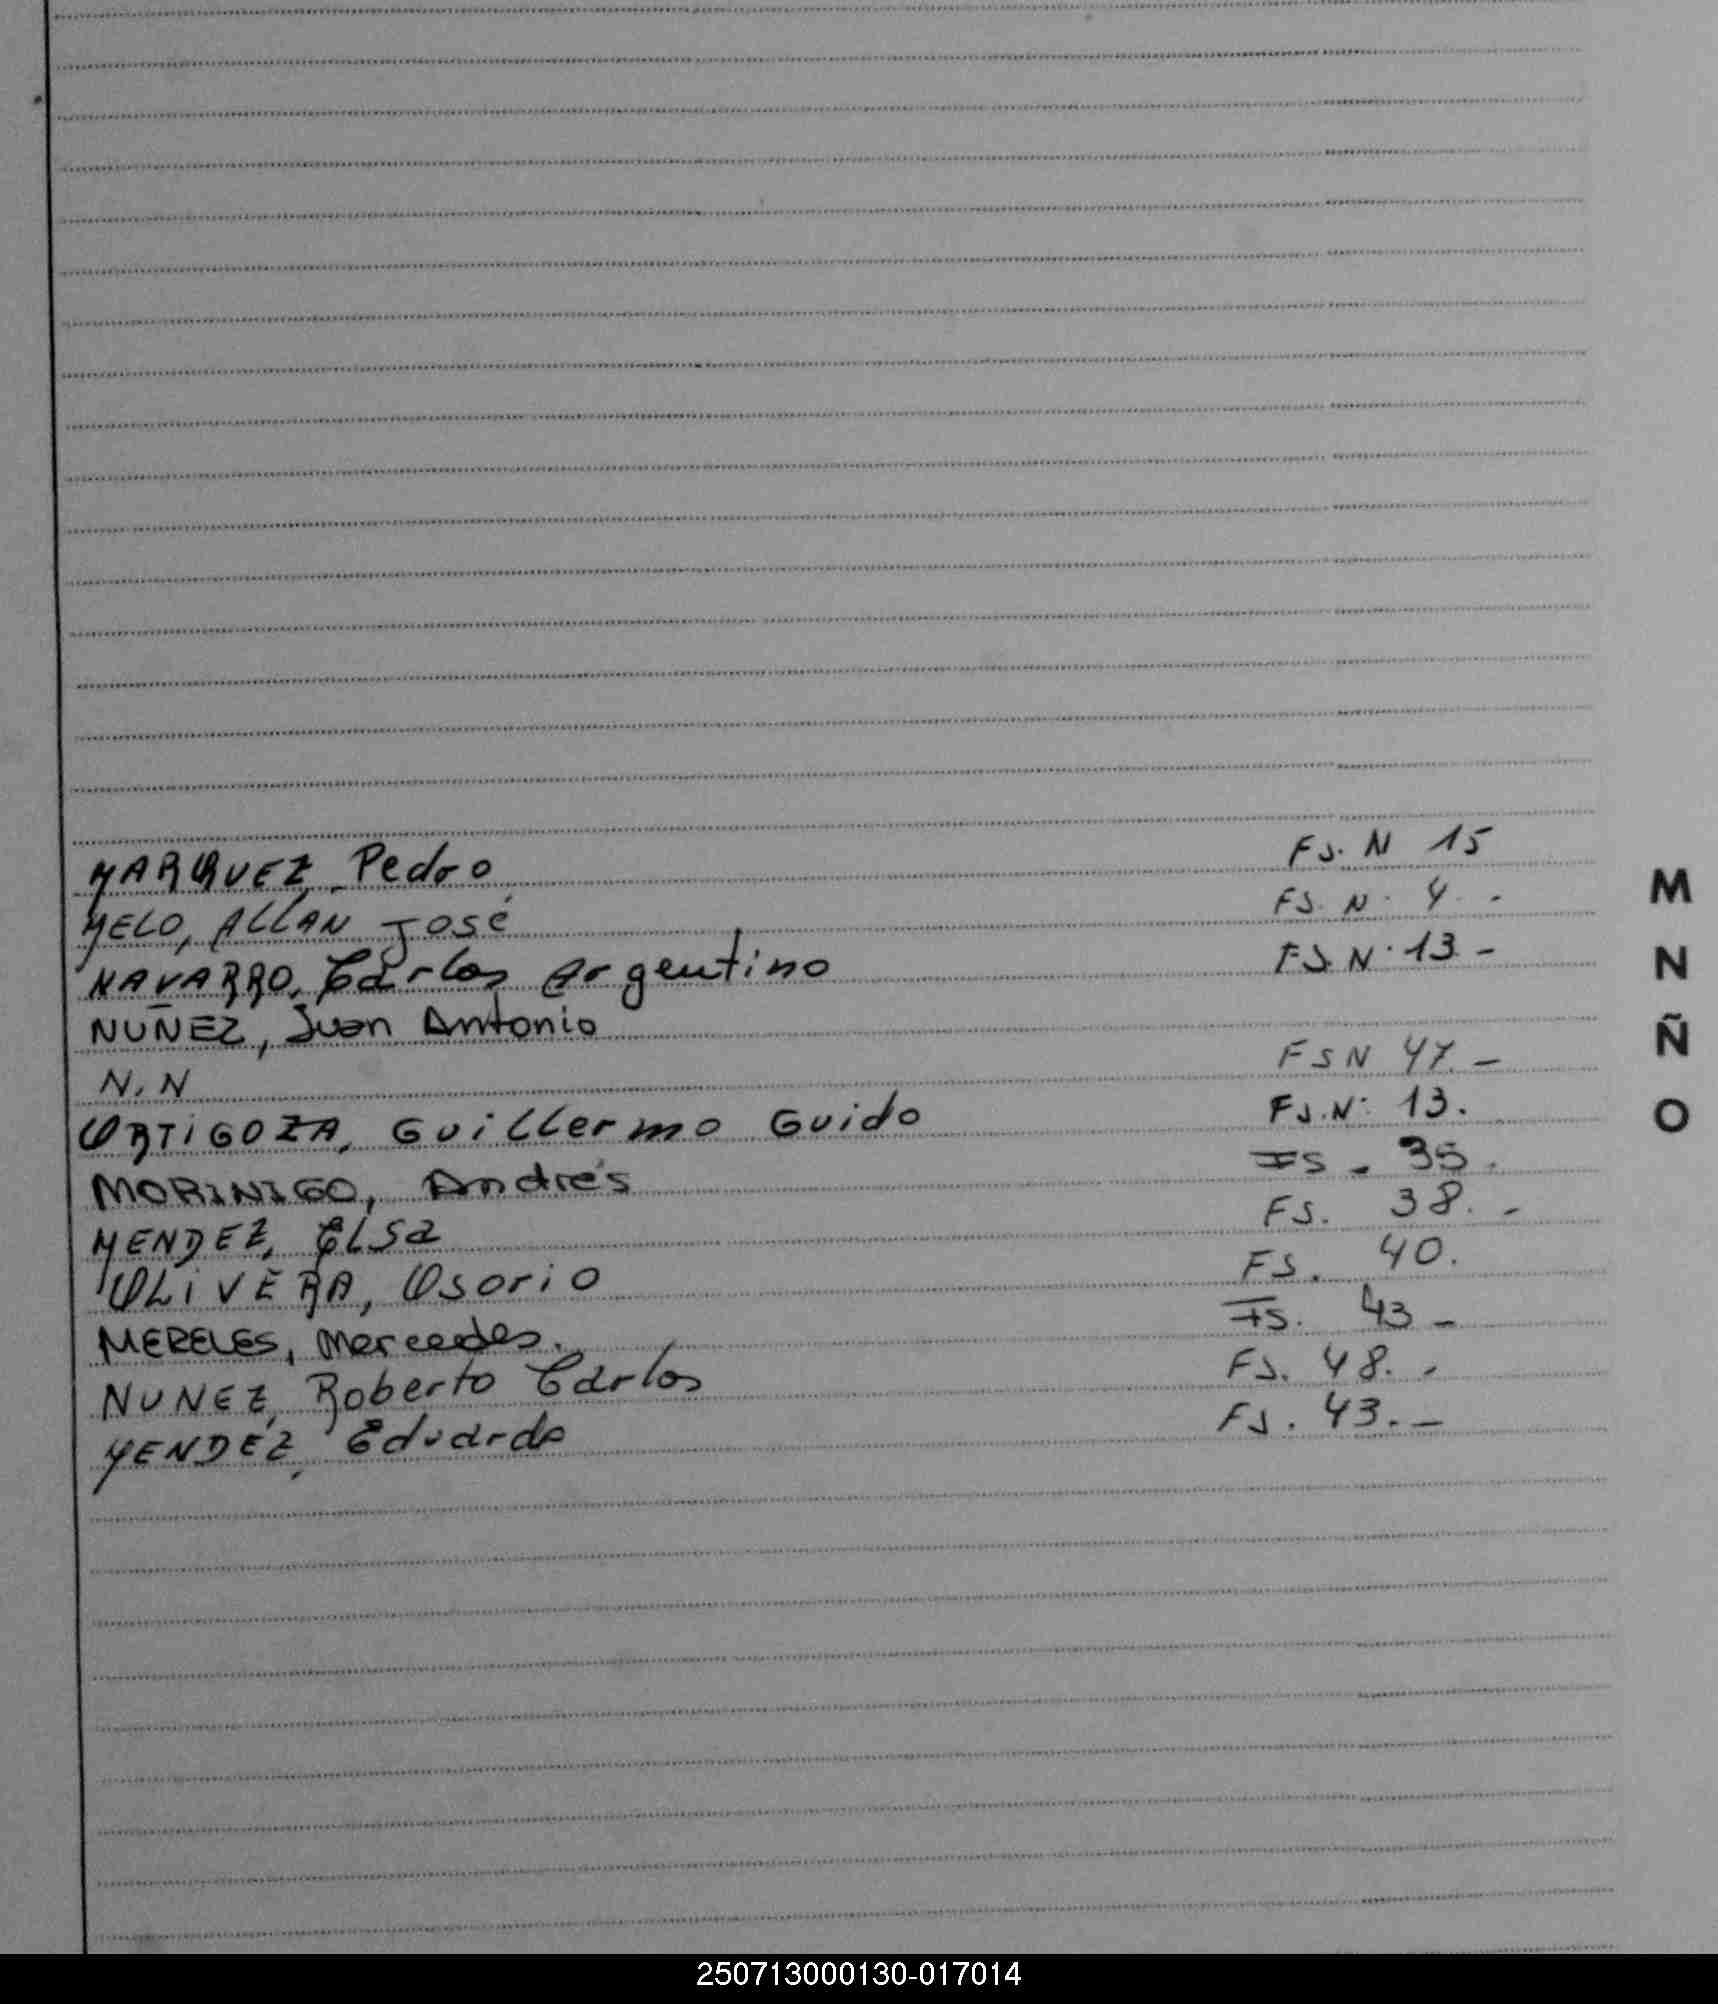 MARQUEZ Pedro FS. N 15
MELO, ALLAN José FS. N. 4. -
NAVARRO, Carlos Argentino FS. N. 13. -
NUÑEZ, Juan Antonio
N.N FSN 47. -
ORTIGOZA, Guillermo Guido FS. N. 13.
MORINIGO, Andrés FS. 35.
MENDEZ, ELSa FS. 38. -
OLIVERA, Osorio FS. 40.
MERELES, Mercedes. FS. 43 -
NUNEZ, Roberto Carlos FS. 48. -
MENDEZ, Eduardo FS. 43. -
M
N
Ñ
O
250713000130-017014